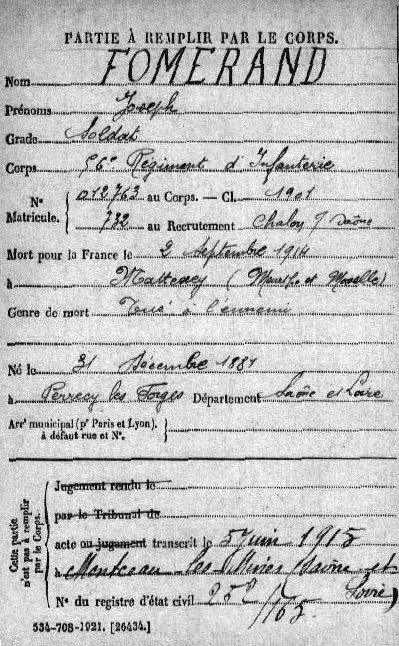 PARTIE À REMPLIR PAR LE CORPS.
Nom FOMERAND
Prénoms Joseph
Grade Soldat
Corps 56e Régiment d'Infanterie
N° Matricule. { 012763 au Corps. — Cl. 1901
732 au Recrutement Chalon s/ Saône
Mort pour la France le 2 Septembre 1914
à Mattexey (Meurthe et Moselle)
Genre de mort Tué à l'ennemi
Né le 31 Décembre 1881
à Perrecy les Forges Département Saône et Loire
Arrt municipal (pr Paris et Lyon),
à défaut rue et N°.
Cette partie n'est pas à remplir par le Corps.
Jugement rendu le
par le Tribunal de
acte ou jugement transcrit le 5 Juin 1915
à Montceau-les-Mines (Saône et Loire)
N° du registre d'état civil
534-708-1921. [26434.]